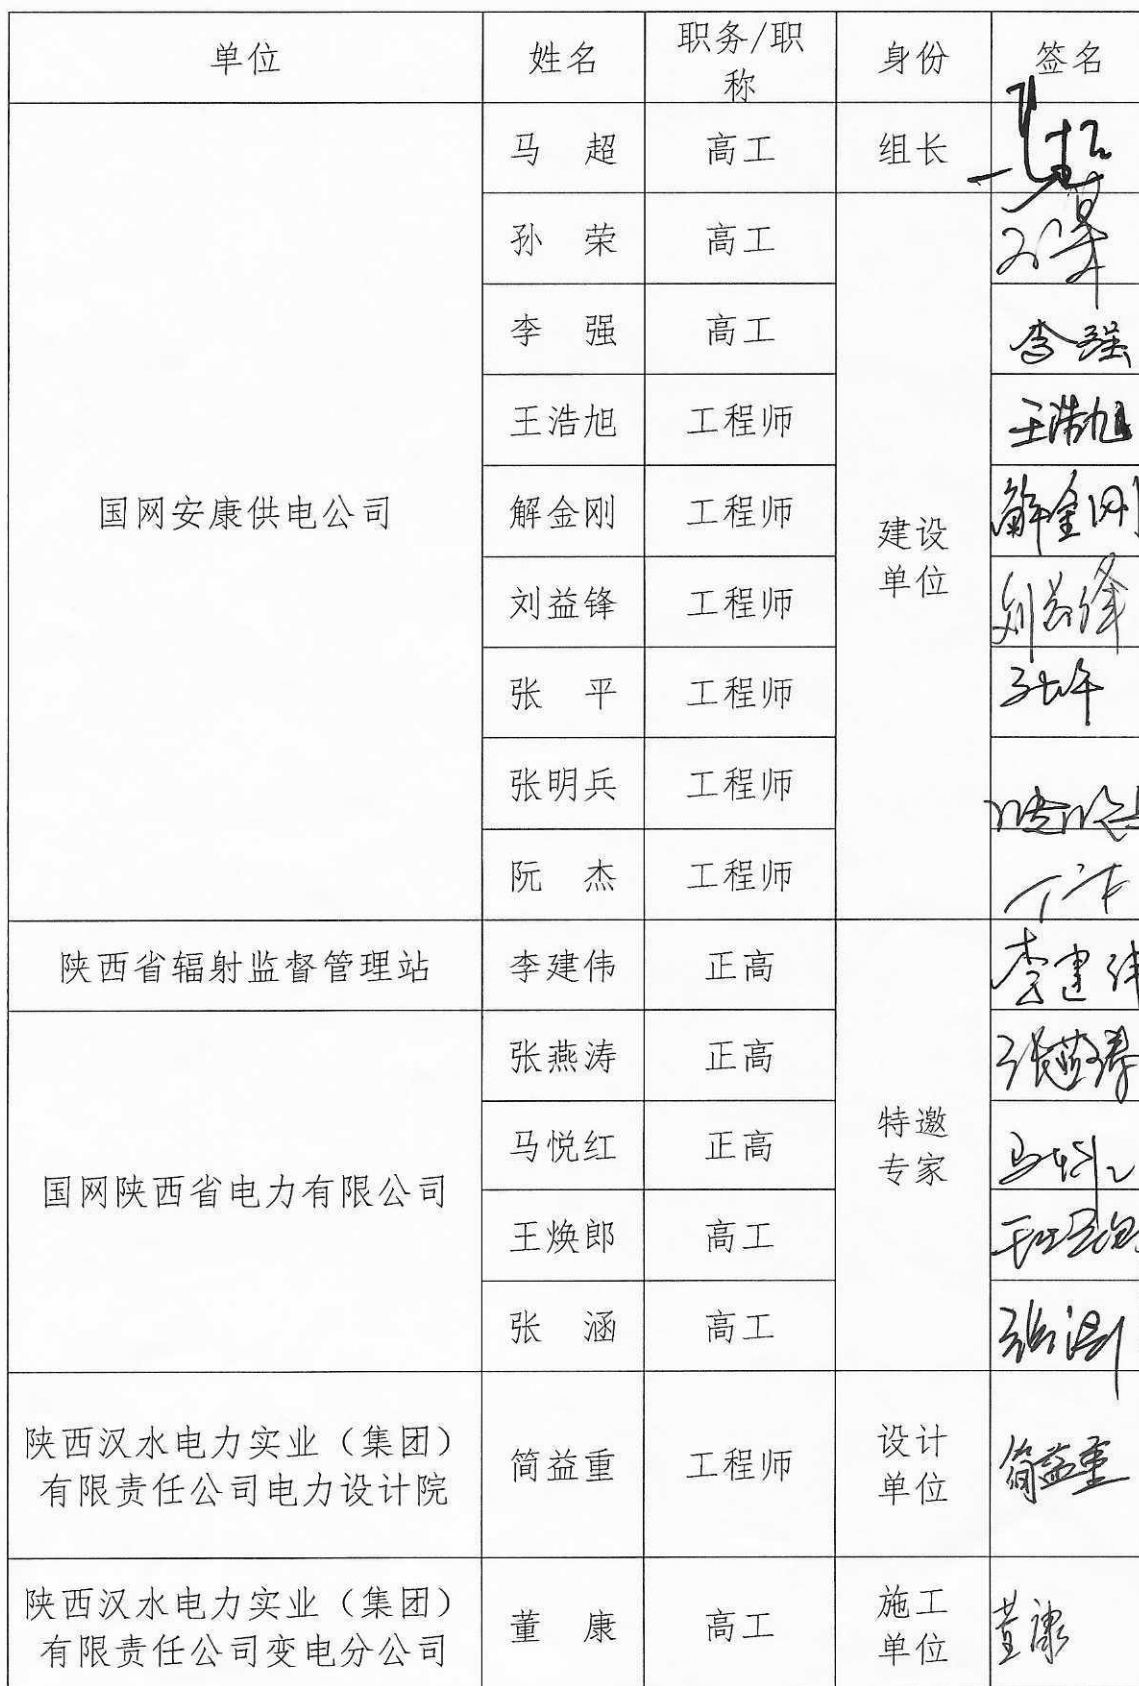 单位 姓名 职务/职称 身份 签名
国网安康供电公司 马 超 高工 组长 马超
孙 荣 高工 建设单位 孙荣
李 强 高工 李强
王浩旭 工程师 王浩旭
解金刚 工程师 解金刚
刘益锋 工程师 刘益锋
张 平 工程师 张平
张明兵 工程师
阮 杰 工程师
陕西省辐射监督管理站 李建伟 正高 特邀专家 李建伟
国网陕西省电力有限公司 张燕涛 正高 张燕涛
马悦红 正高 马悦红
王焕郎 高工 王焕郎
张 涵 高工 张涵
陕西汉水电力实业（集团）
有限责任公司电力设计院 简益重 工程师 设计单位 简益重
陕西汉水电力实业（集团）
有限责任公司变电分公司 董 康 高工 施工单位 董康